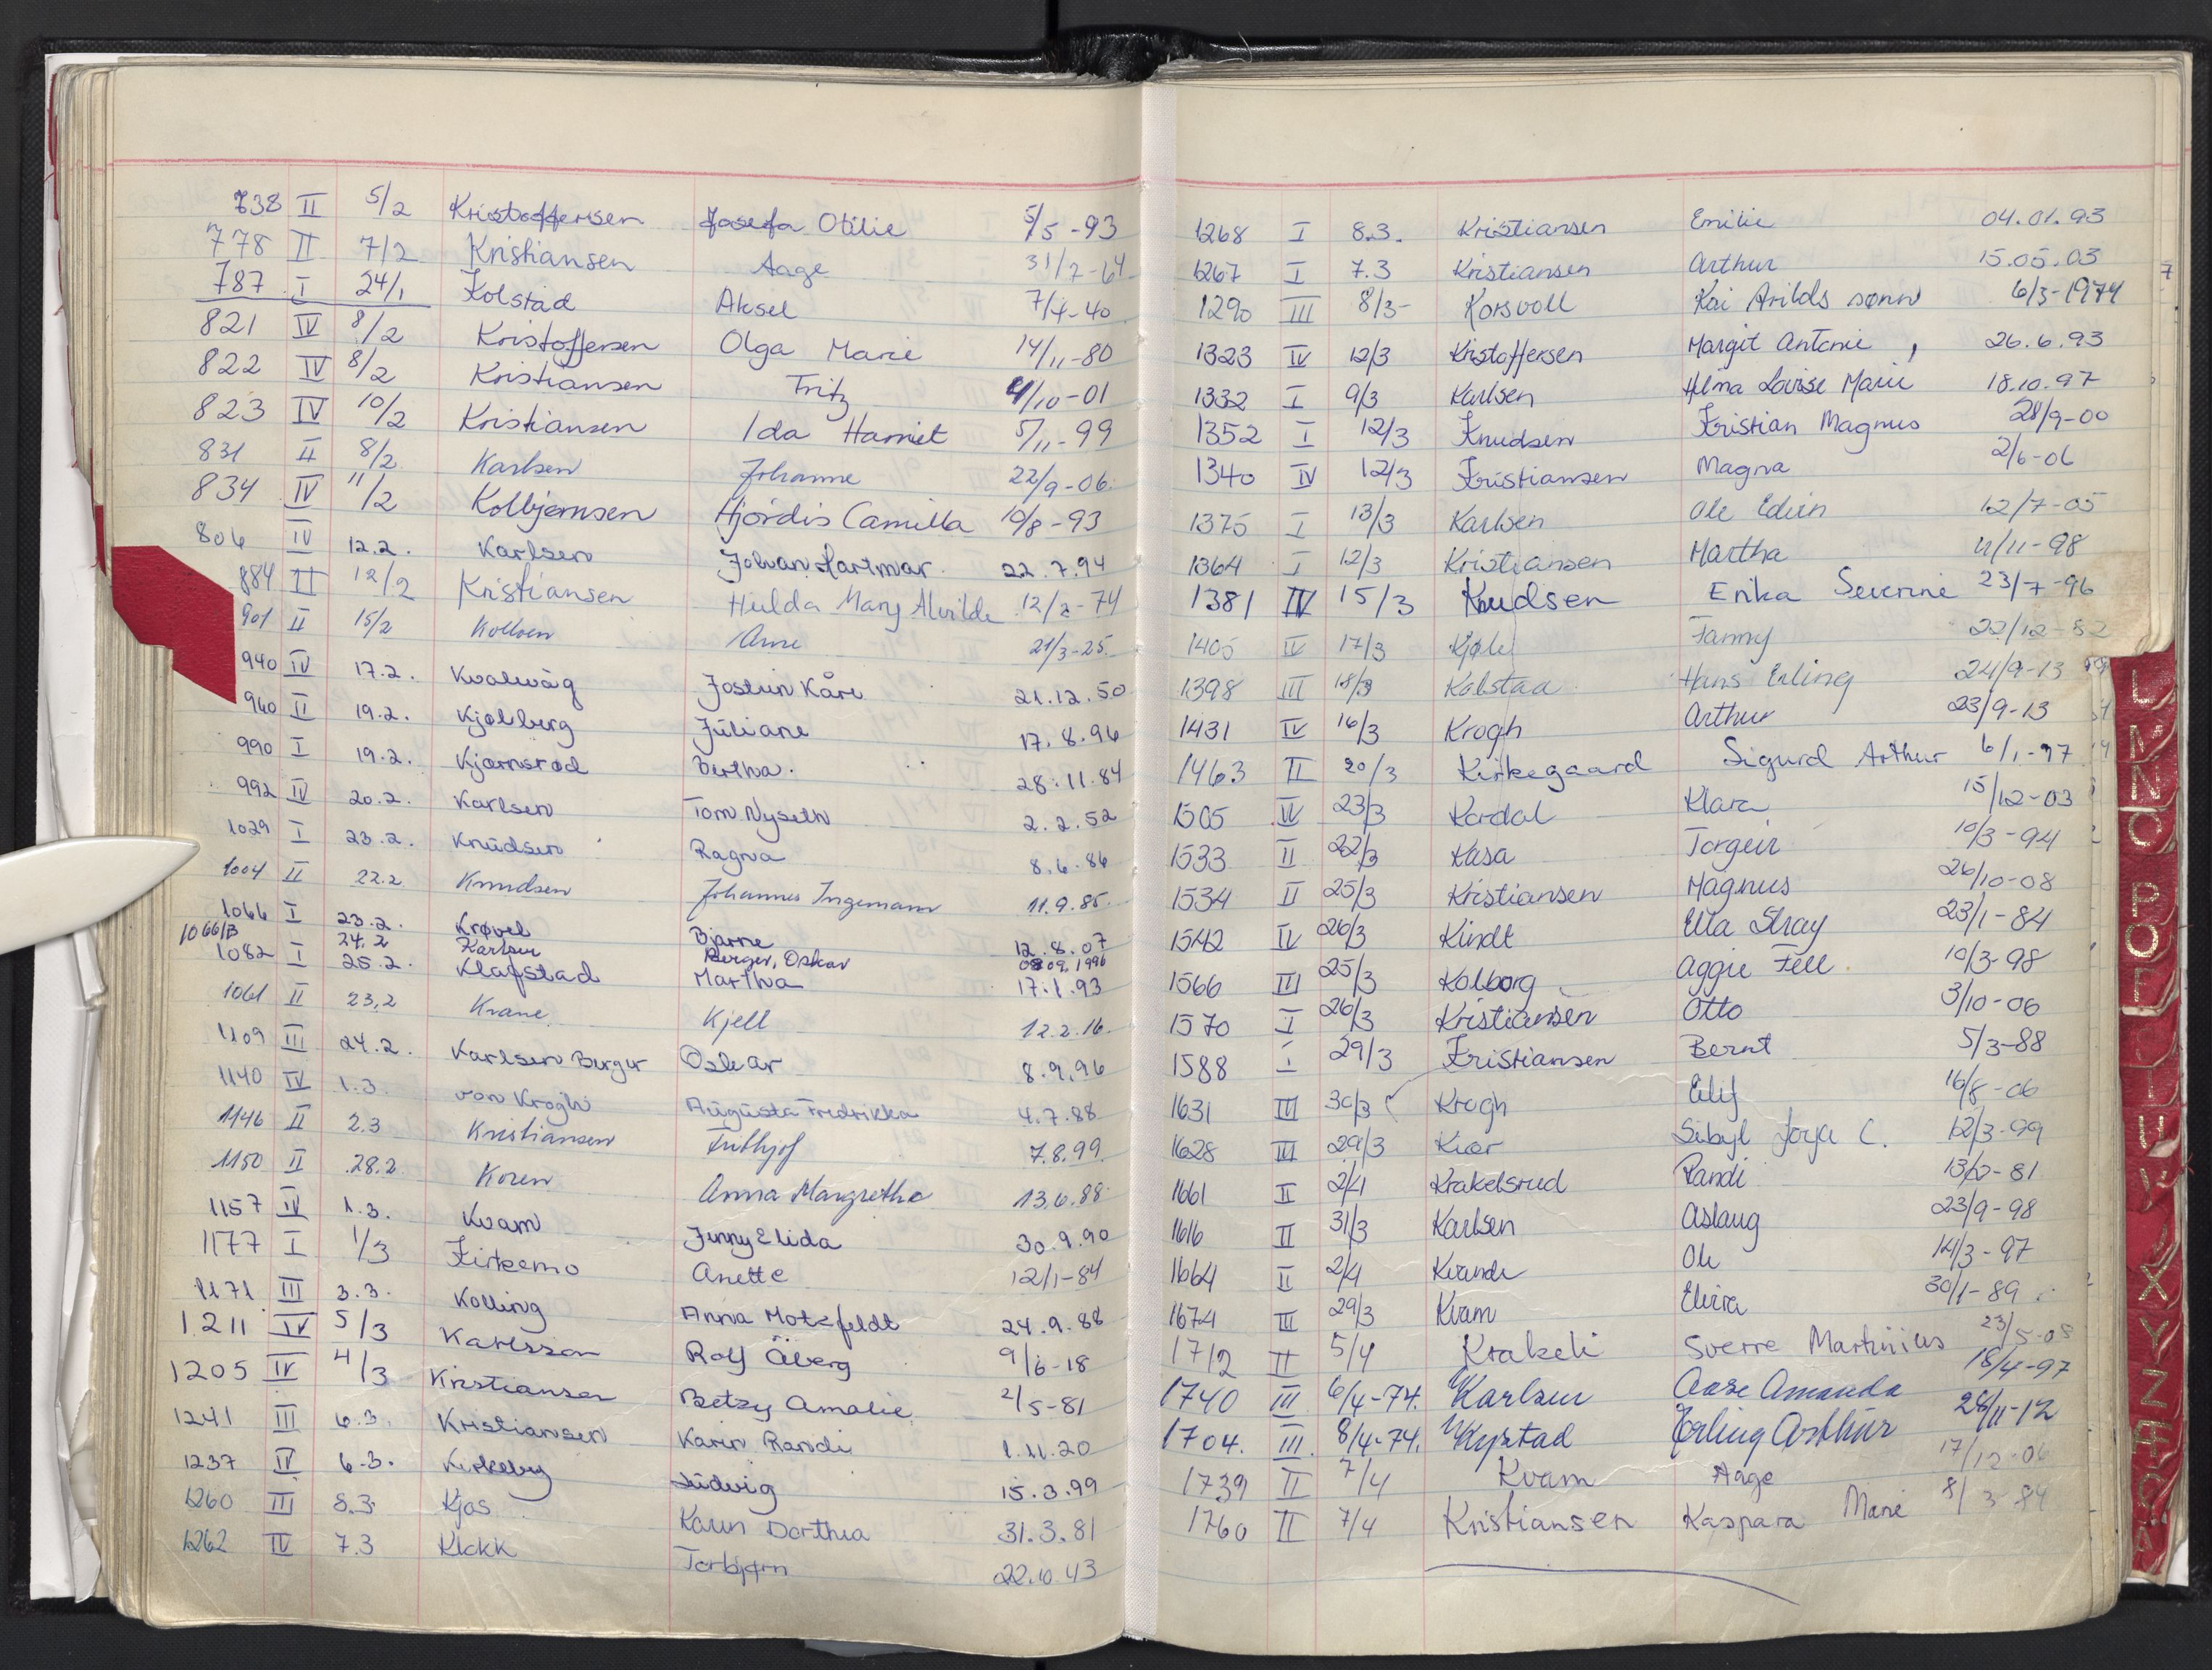 738 II 5/2 Kristoffersen Josefa Otilie 5/5-93
778 II 7/2 Kristiansen Aage 31/7-64
787 I 24/1 Kolstad Aksel 7/4-40
821 IV 8/2 Kristoffersen Olga Marie 14/11-80
822 IV 8/2 Kristiansen Fritz 4/10-01
823 IV 10/2 Kristiansen Ida Harriet 5/11-99
831 II 8/2 Karlsen Johanne 22/9-06
834 IV 11/2 Kolbjørnsen Hjördis Camilla 10/8-93
806 IV 12.2. Karlsen Johan Hartmar 22.7.94
884 II 12/2 Kristiansen Hulda Mary Alvilde 12/2-74
901 II 15/2 Arne 21/3-25
940 IV 17.2. Kvalvåg Jostein Kåre 21.12.50
960 II 19.2. Kjølberg Juliane 17.8.96
990 I 19.2. Kjærnsrød Bertha. 28.11.84
992 IV 20.2. Karlsen Tom Nyseth 2.2.52
1029 I 23.2. Knudsen Ragna 8.6.86
1004 II 22.2 Knudsen Johannes Ingemann 11.9.85
1066 I 23.2. Krøvel Bjarne 12.8.07
1066/B 24.2 Karlsen Berger, Oskar 08.09.1996
1082 I 25.2. Klafstad Martha 17.1.93
1061 II 23.2 Krane Kjell 12.2.16
1109 III 24.2. Karlsen Birger Oskar 8.9.96
1140 IV 1.3. von Krogh Augusta Fredrikka 4.7.88
1146 II 2.3 Kristiansen Frithjof 7.8.99
1150 II 28.2 Koren Anna Margrethe 13.6.88
1157 IV 1.3. Kvam Jenny Elida 30.9.90
1177 I 1/3 Kirkemo Anette 12/1-84
1171 III 3.3. Kolling Anna Motzfeldt 24.9.88
1211 IV 5/3 Karlsson Rolf Åberg 9/6-18
1205 IV 4/3 Kristiansen Betzy Amalie 2/5-81
1241 III 6.3. Kristiansen Karin Randi 1.11.20
1237 IV 6.3. Kirkeby Ludvig 15.3.99
1260 III 8.3 Kjos Karen Dorthea 31.3.81
1262 IV 7.3 Klokk Torbjørn 22.10.43
1268 I 8.3. Kristiansen Emilie 04.01.93
1267 I 7.3 Kristiansen Arthur 15.05.03
1290 III 8/3- Korsvoll Kai Arilds sønn 6/3-1974
1323 IV 12/3 Kristoffersen Margit Antonie , 26.6.93
1332 I 9/3 Karlsen Helma Lovise Marie 18.10.97
1352 I 12/3 Knudsen Kristian Magnus 28/9-00
1340 IV 12/3 Kristiansen Magna 2/6-06
1375 I 13/3 Karlsen Ole Edvin 12/7-05
1364 I 12/3 Kristiansen Martha 4/11-98
1381 IV 15/3 Knudsen Erika Severine 23/7-96
1405 IV 17/3 Fanny 22/12-82
1398 III 18/3 Kolstad Hans Erling 24/9-13
1431 IV 16/3 Krogh Arthur 23/9-13
1463 II 20/3 Kirkegaard Sigurd Arthur 6/1-97
1505 IV 23/3 Kordal Klara 15/12-03
1533 II 22/3 Kasa Torgeir 10/3-94
1534 II 25/3 Kristiansen Magnus 26/10-08
1542 IV 26/3 Kindt Ella Stray 23/1-84
1566 III 25/3 Kolborg Aggie Fell 10/3-98
1570 I 26/3 Kristiansen Otto 3/10-06
1588 I 29/3 Kristiansen Bernt 5/3-88
1631 III 30/3 Krogh Eilif 16/8-06
1628 III 29/3 Kiær Sibyl C. 12/3-99
1661 II 2/4 Krakelsrud Randi 13/2-81
1616 II 31/3 Karlsen Aslaug 23/9-98
1664 II 2/4 Ole 14/3-97
1674 III 29/3 Kvam Elvira 30/1-89
1712 II 5/4 Krakeli Sverre Martinius 23/5-08
1740 III 6/4-74. Karlsen Aase Amanda 18/4-97
1704. III 8/4-74. Kystad Erling Arthur 28/11-12
1739 II 7/4 Kvam Aage 17/12-06
1760 II 7/4 Kristiansen Kaspara Marie 8/3-84
L
M
N
O
P
X
Y
Z
Æ
Ø